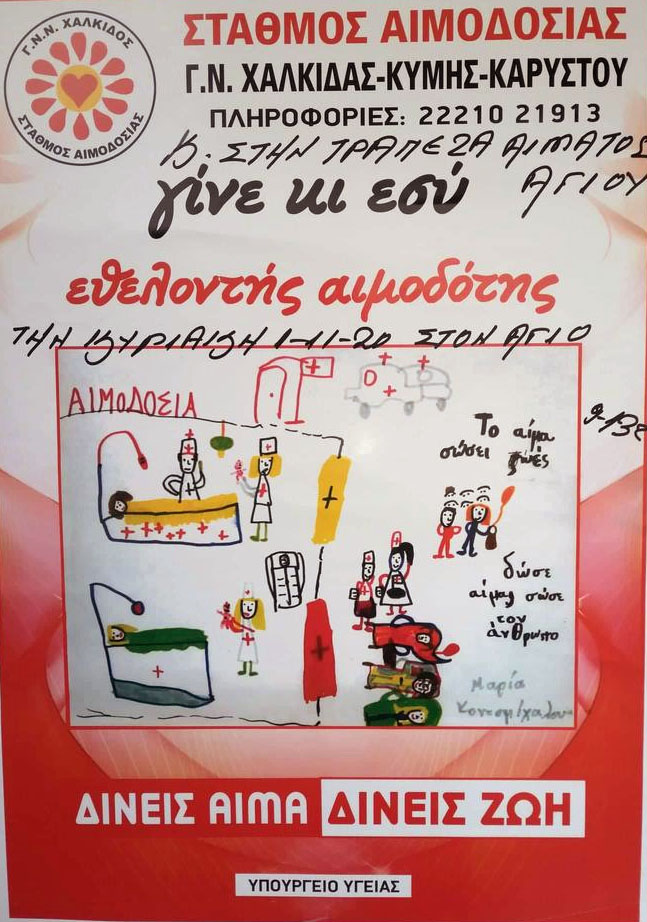 Γ.Ν.Ν. ΧΑΛΚΙΔΟΣ
ΣΤΑΘΜΟΣ ΑΙΜΟΔΟΣΙΑΣ
ΣΤΑΘΜΟΣ ΑΙΜΟΔΟΣΙΑΣ
Γ.Ν. ΧΑΛΚΙΔΑΣ-ΚΥΜΗΣ-ΚΑΡΥΣΤΟΥ
ΠΛΗΡΟΦΟΡΙΕΣ: 22210 21913
Κ. ΣΤΗΝ ΤΡΑΠΕΖΑ ΑΙΜΑΤΟΣ
ΑΓΙΟΥ
γίνε κι εσύ
εθελοντής αιμοδότης
ΤΗΝ ΚΥΡΙΑΚΗ 1-11-20 ΣΤΟΝ ΑΓΙΟ
ΑΙΜΟΔΟΣΙΑ
Το αίμα
σώσει ζωές
δώσε
αίμα σώσε
τον
άνθρωπο
Μαρία
ΔΙΝΕΙΣ ΑΙΜΑ ΔΙΝΕΙΣ ΖΩΗ
ΥΠΟΥΡΓΕΙΟ ΥΓΕΙΑΣ